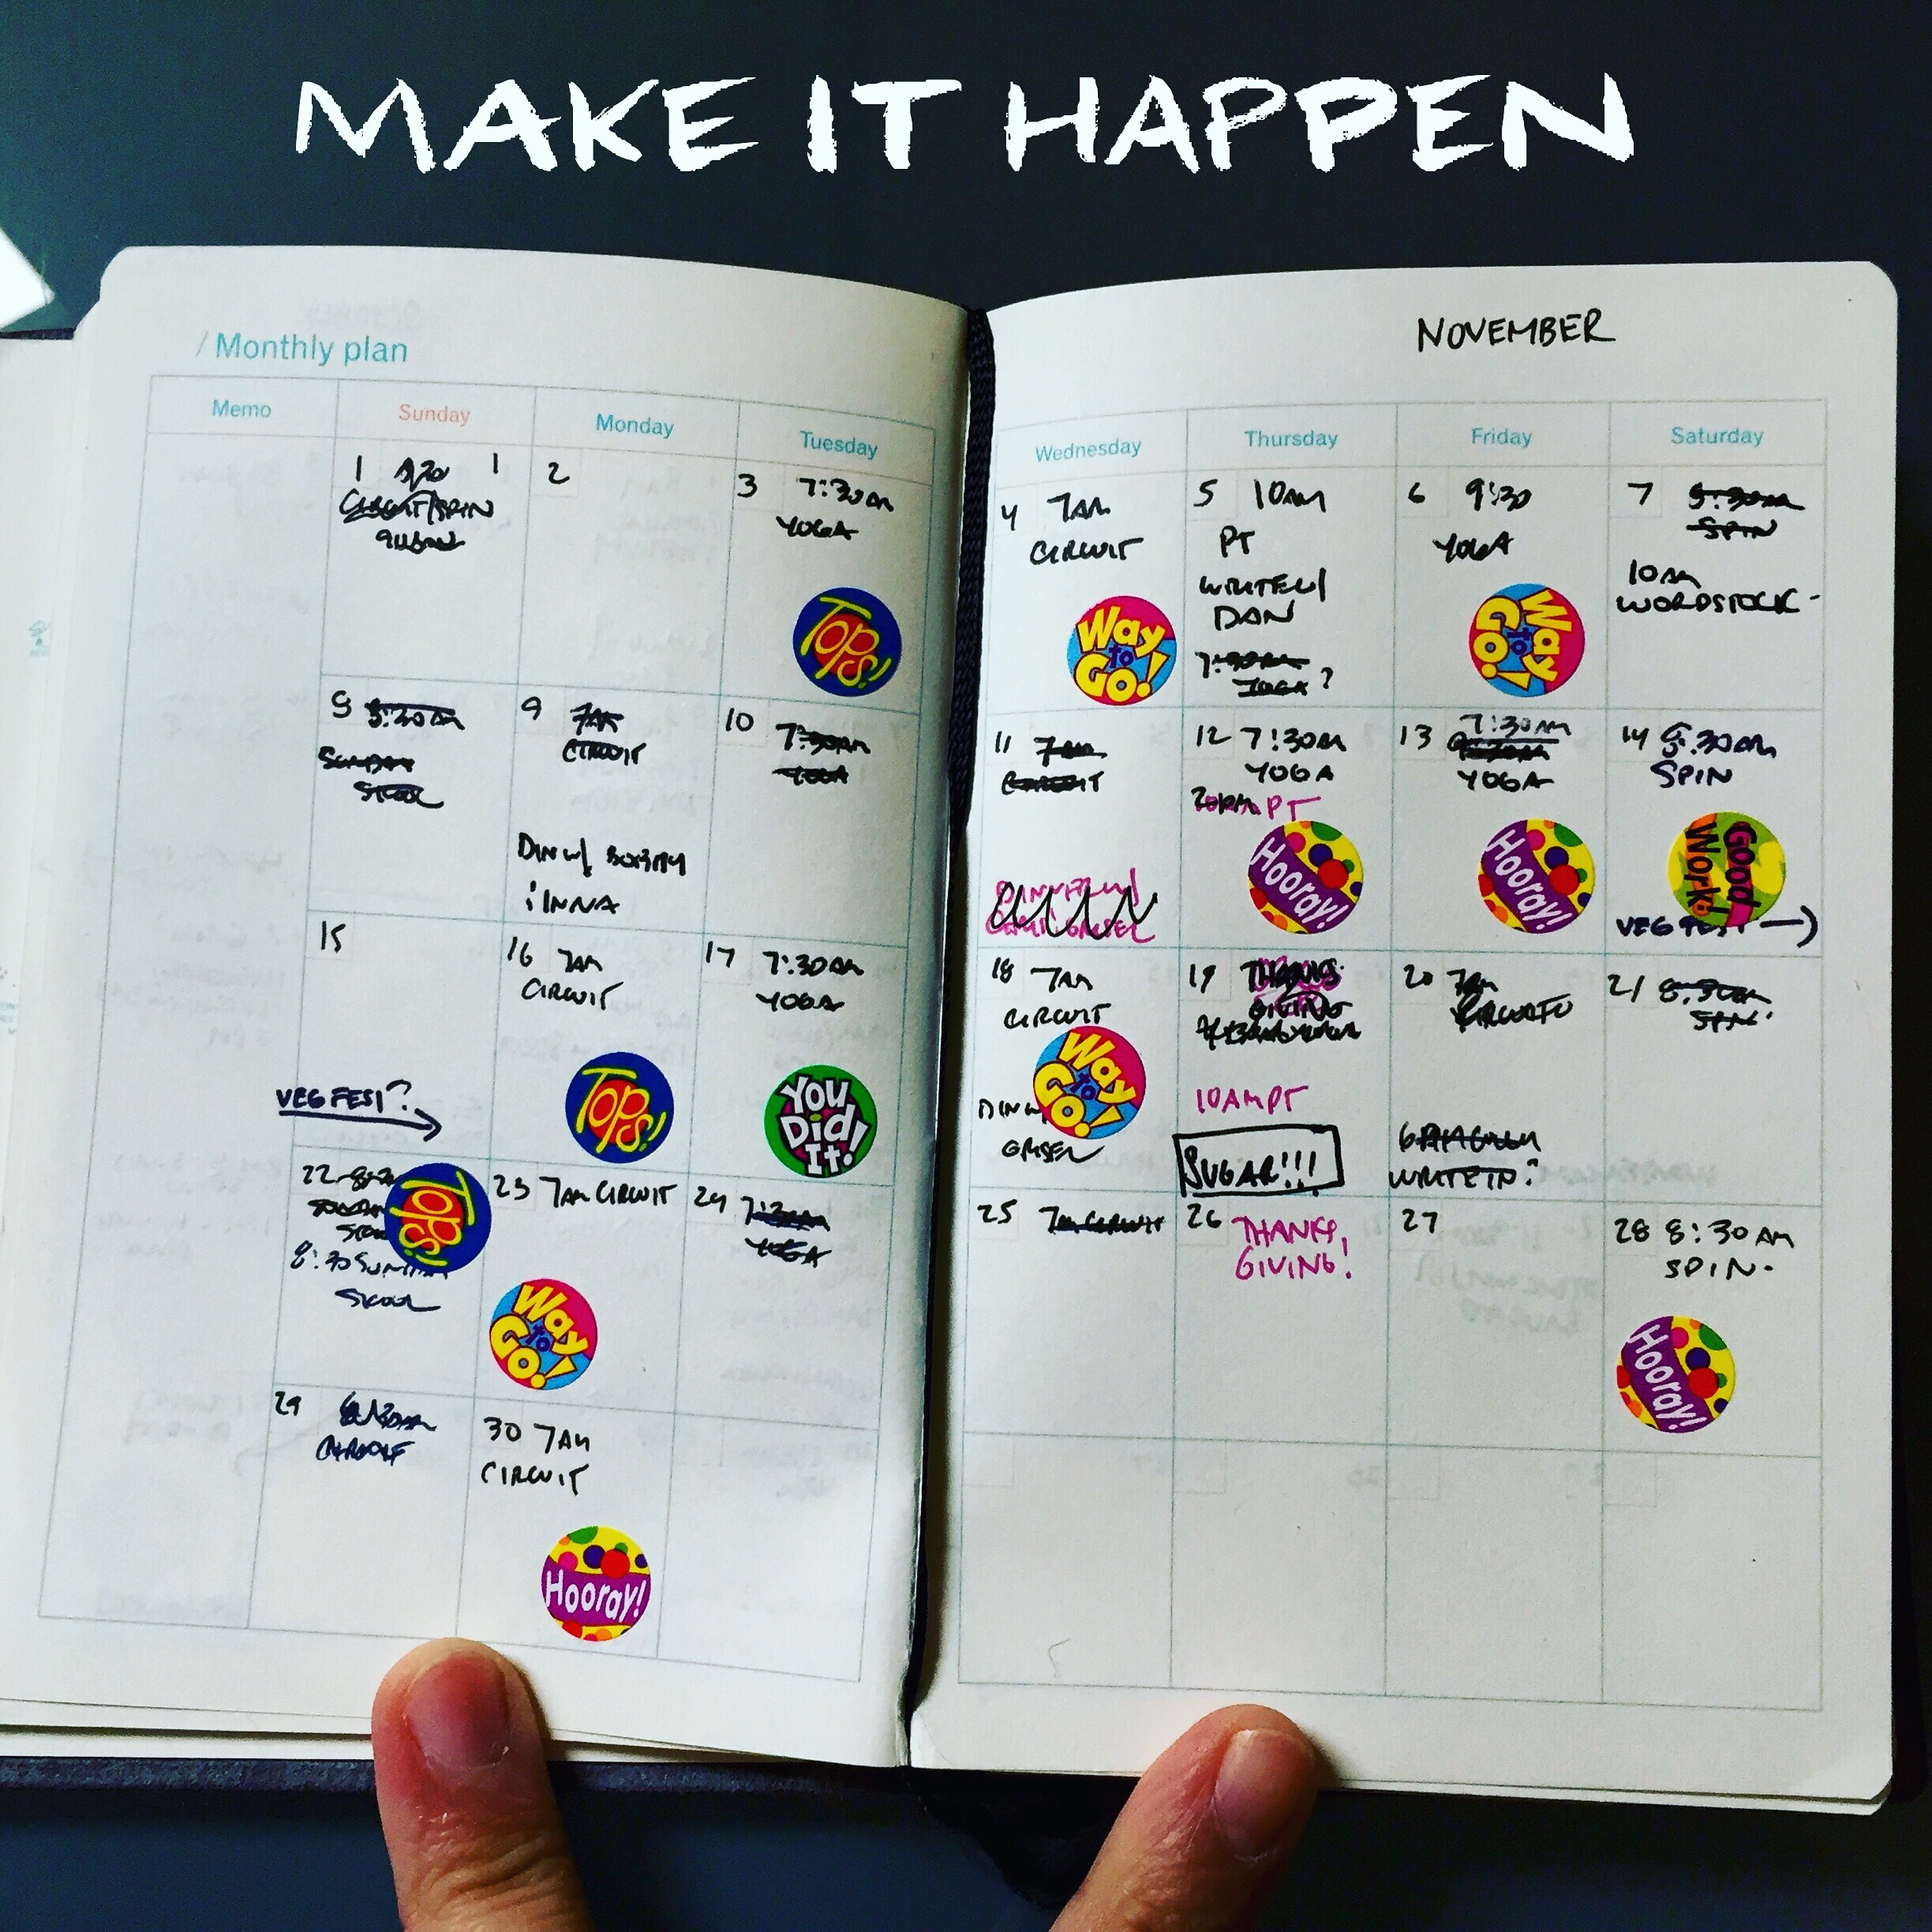 MAKE IT HAPPEN
/ Monthly plan
NOVEMBER
Memo
Sunday
Monday
Tuesday
Wednesday
Thursday
Friday
Saturday
1
1
2
3 7:30AM
YOGA
TOPS!
4 7AM
CIRCUIT
Way
to
Go!
5 10AM
PT
WRITE W/
DAN
YOGA?
6 9:30
YOGA
Way
to
Go!
7 8:30AM
SPIN
10AM
WORDSTOCK
8:30AM
SUNDAY
SKOOL
9 7AM
CIRCUIT
DIN W/ BOBBY
INNA
10 7:30AM
YOGA
11 7AM
CIRCUIT
12 7:30AM
YOGA
PT
Hooray!
13 7:30AM
YOGA
Hooray!
14 8:30AM
SPIN
Good
Work!
VEG FEST →
15
VEG FEST?
16 7AM
CIRCUIT
TOPS!
17 7:30AM
YOGA
You
Did
It!
18 7AM
CIRCUIT
Way
to
Go!
DIN W/
19 THANKS
GIVING
10AM PT
SUGAR!!!
20 7AM
WRITE IN?
21 8:30AM
SPIN
22
TOPS!
8:30 SUNDAY
SKOOL
23 7AM CIRCUIT
Way
to
Go!
24 7:30AM
YOGA
25 7AM CIRCUIT
26 THANKS
GIVING!
27
28 8:30AM
SPIN
Hooray!
29
30 7AM
CIRCUIT
Hooray!